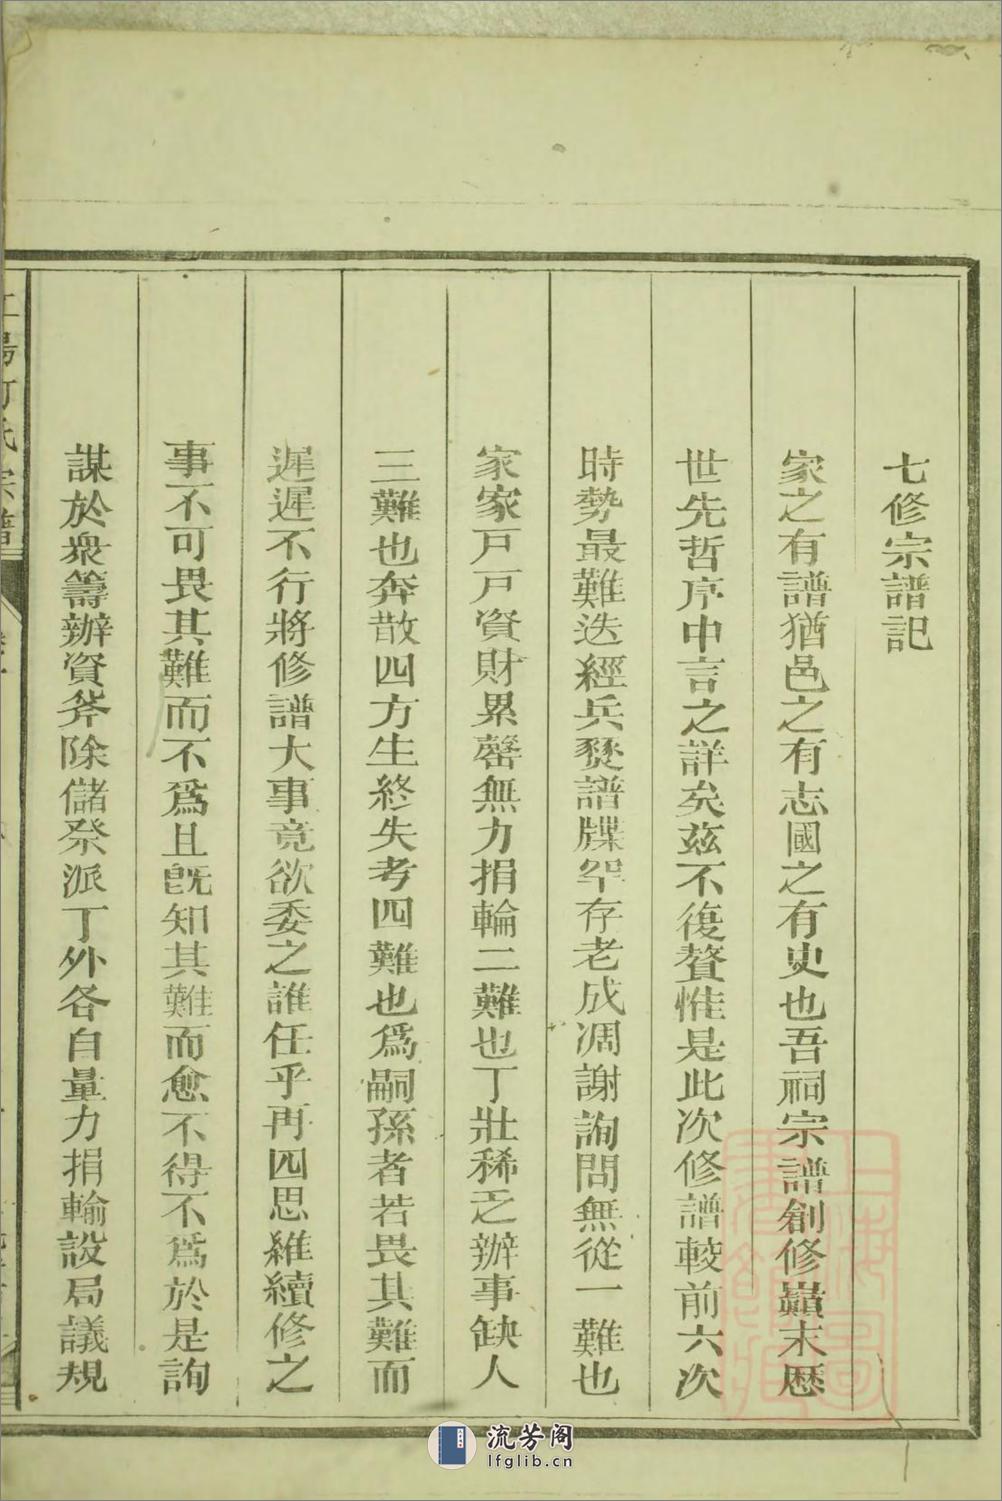 七修宗譜記
家之有譜猶邑之有志國之有史也吾祠宗譜創修巔末歷
世先哲序中言之詳矣茲不復贅惟是此次修譜較前六次
時勢最難迭經兵燹譜牒罕存老成凋謝詢問無從一難也
家家戸戸資財累罄無力捐輪二難也丁壯稀乏辦事缺人
三難也奔散四方生終失考四難也爲嗣孫者若畏其難而
遲遲不行將修譜大事竟欲委之誰任乎再四思維續修之
事不可畏其難而不爲且旣知其難而愈不得不爲於是詢
謀於衆籌辦資斧除儲祭派丁外各自量力捐輸設局議規
流芳阁
lfglib.cn